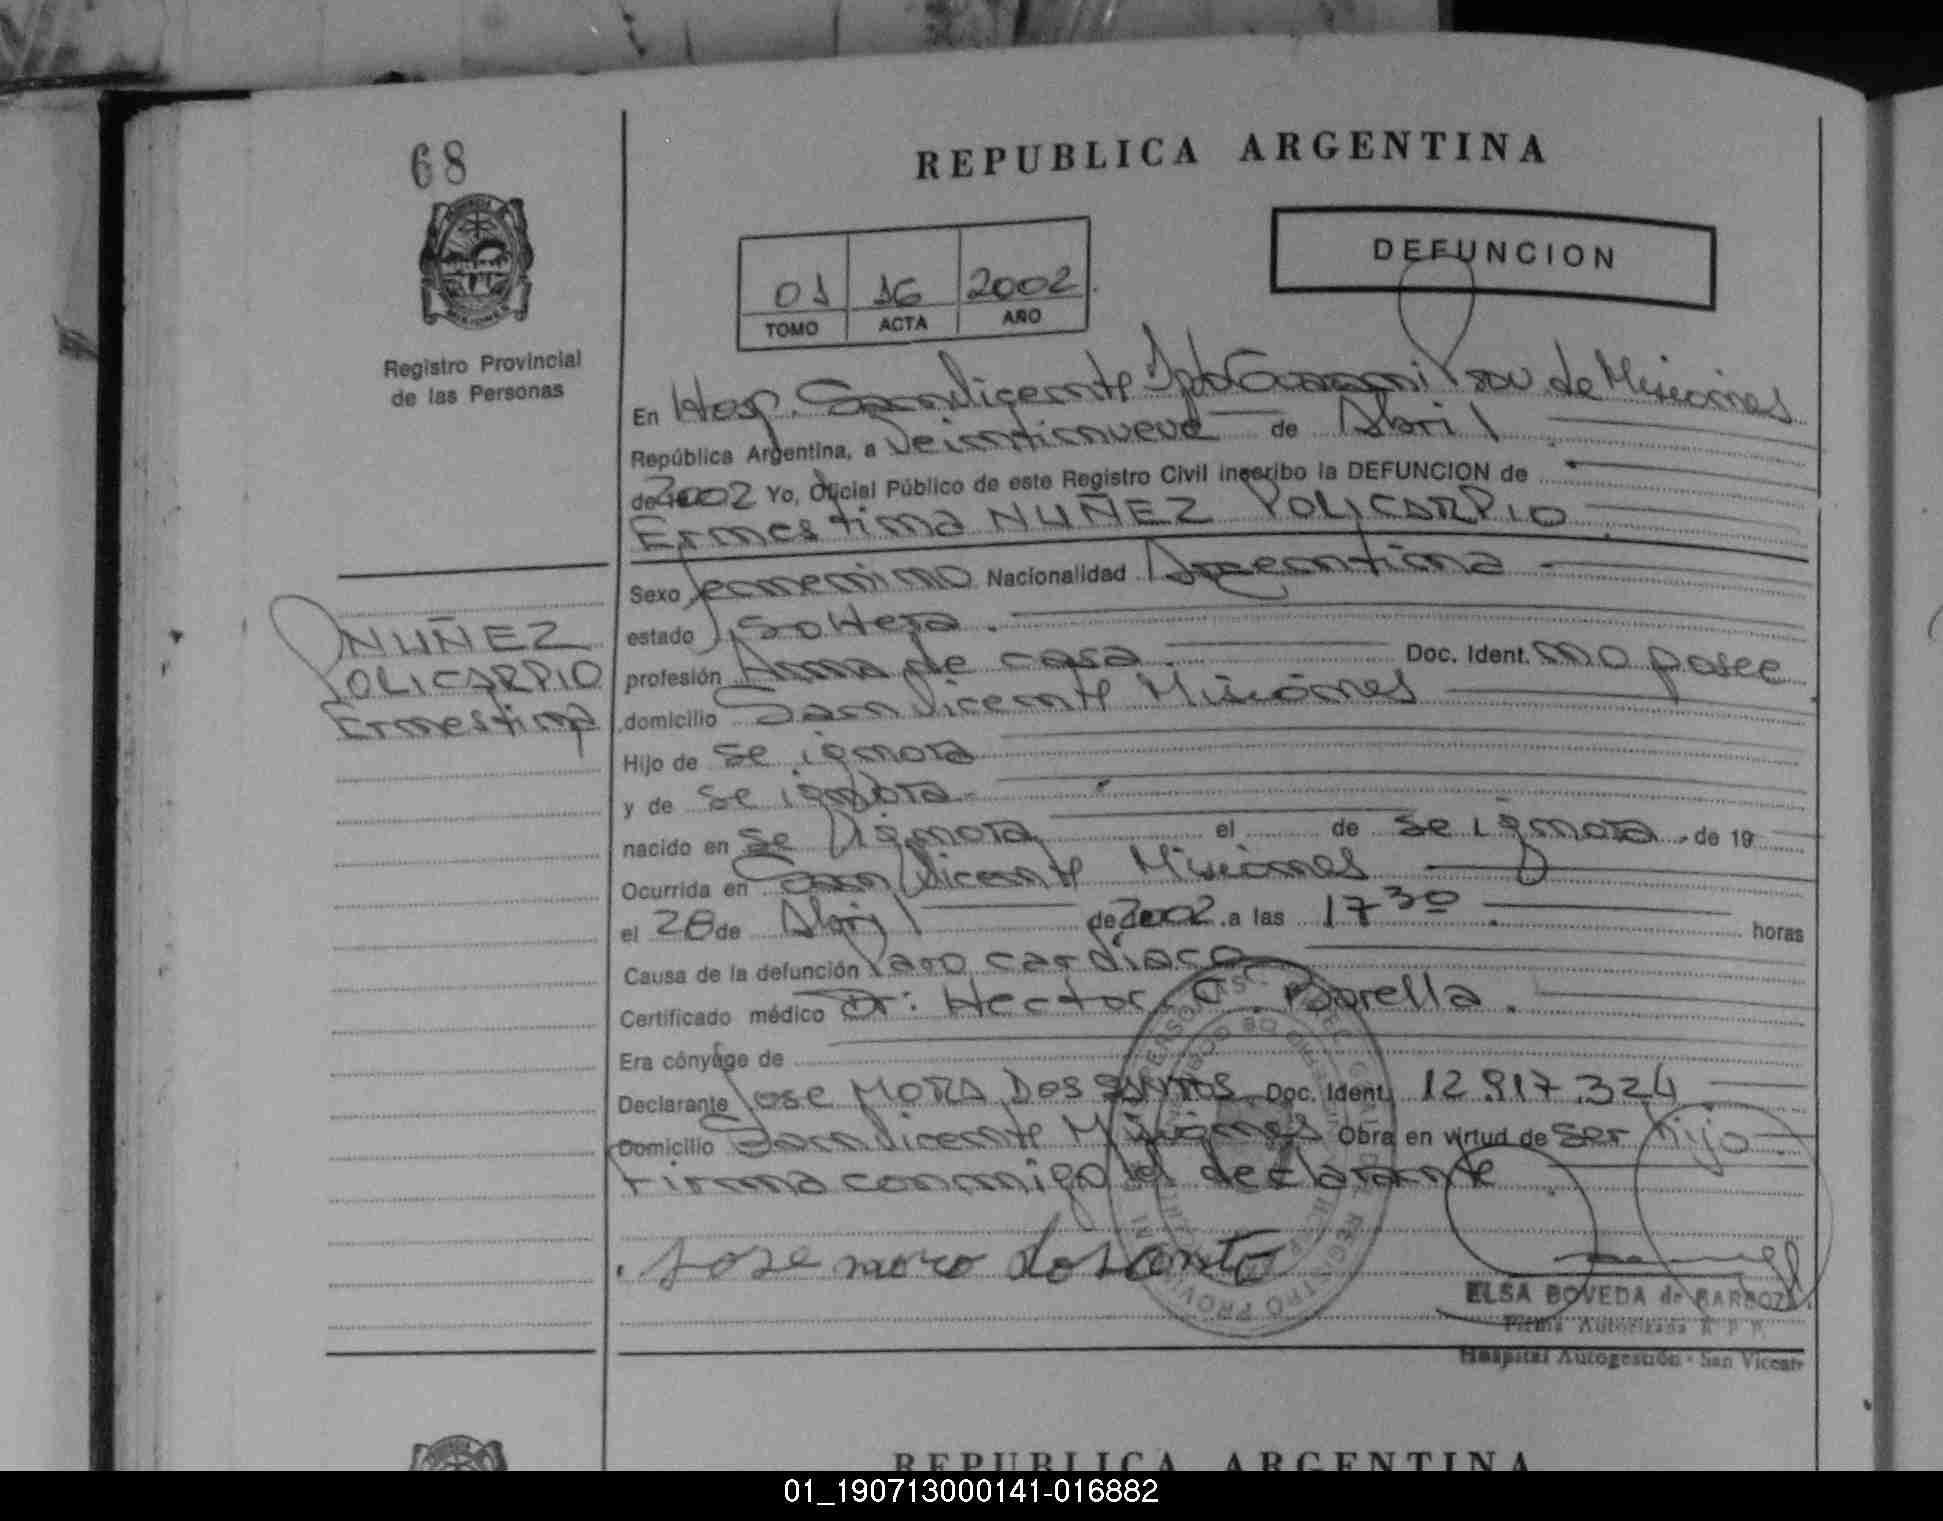 68
REPUBLICA ARGENTINA
DEFUNCION
01 16 2002
TOMO ACTA AÑO
Registro Provincial
de las Personas
En Hosp. San Vicente Dpto Guarani Prov. de Misiones
República Argentina, a Veintinueve de Abril
de 2002 Yo, Oficial Público de este Registro Civil inscribo la DEFUNCION de
Ernestina NUÑEZ POLICARPIO
NUÑEZ
POLICARPIO
Ernestina
Sexo femenino Nacionalidad Argentina
estado Soltera.
profesión Ama de casa. Doc. Ident. no posee
domicilio San Vicente Misiones
Hijo de se ignora
y de se ignora
nacido en se ignora el de se ignora de 19
Ocurrida en San Vicente Misiones
el 28 de Abril de 2002 a las 17 30 horas
Causa de la defunción Paro cardiaco
Certificado médico Dr: Hector O. Borella.
Era cónyuge de
Declarante Jose MORA DOS SANTOS Doc. Ident. 12.917.324
Domicilio San Vicente Misiones Obra en virtud de ser hijo
Firma conmigo el declarante
Jose moro dosanto
ELSA BOVEDA de BARBOZA
Firma Autorizada R.P.P.
Hospital Autogestión - San Vicente
REPUBLICA ARGENTINA
01_190713000141-016882